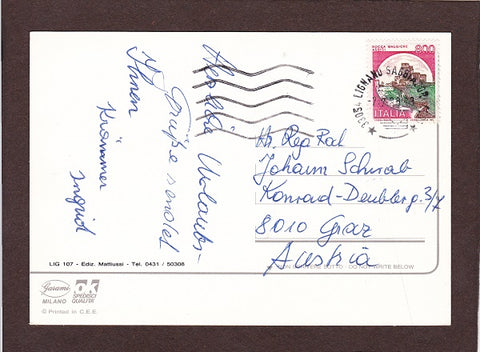 Herzliche Urlaubs-
Grüße sendet
Ihnen
Krammer
Ingrid
ROCCA MAGGIORE
800
ITALIA
33054 LIGNANO SABBIADORO
Hr. Reg Rat
Johann Schwab
Konrad-Deubler g. 3/7
8010 Graz
Austria
LIG 107 - Ediz. Mattiussi - Tel. 0431 / 50308
DO NOT WRITE BELOW
Garami
MILANO
SPEDISCI
QUALITÀ
© Printed in C.E.E.